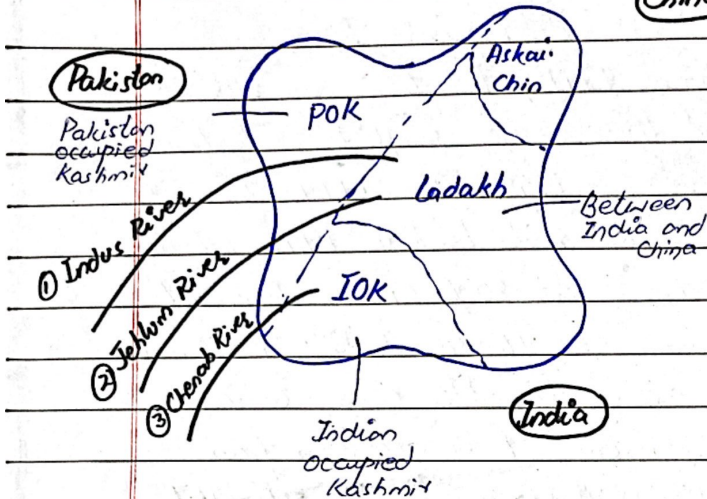 China
Pakistan
Pakistan
occupied
Kashmir
POK
Askai
Chin
Ladakh
Between
India and
China
① Indus River
② Jehlum River
③ Chenab River
IOK
India
Indian
occupied
Kashmir